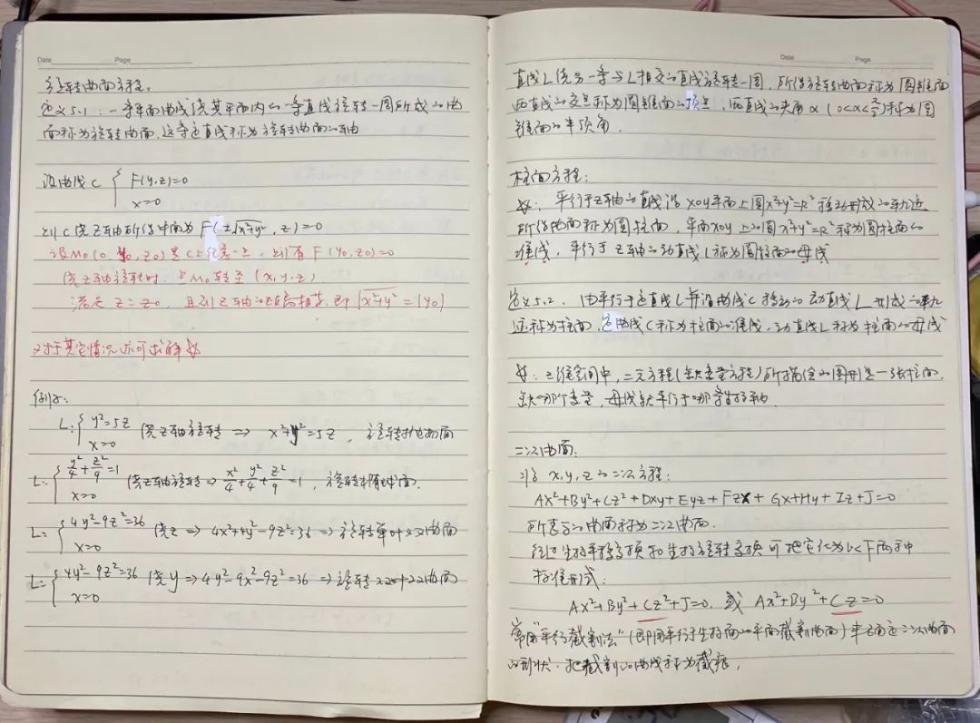 Date Page
旋转曲面方程。
定义5.1:一条平面曲线绕其平面内的一条直线旋转一周所成的曲
面称为旋转曲面,这条定直线称为旋转曲面的轴
设曲线C { F(y,z)=0
x=0
则C绕Z轴所得曲面为 F(±√x²+y², z)=0
设M₀(0, y₀, z₀)是C上任意一点,则有 F(y₀,z₀)=0
绕Z轴旋转时,点M₀转至(x,y,z)
满足 z=z₀,且到Z轴的距离相等,即 √x²+y² = |y₀|
对于其它情况亦可求解
例:
L:{ y²=5z 绕z轴旋转 ⇒ x²+y²=5z,旋转抛物面
x=0
L:{ y²/4+z²/9=1 绕z轴旋转 ⇒ x²/4+y²/4+z²/9=1,旋转椭球面
x=0
L:{ 4y²-9z²=36 绕z ⇒ 4x²+4y²-9z²=36 ⇒ 旋转单叶双曲面
x=0
L:{ 4y²-9z²=36 绕y ⇒ 4y²-9x²-9z²=36 ⇒ 旋转双叶双曲面
x=0
Date Page
直线L绕另一条与L相交的直线旋转一周,所得旋转曲面称为圆锥面
两直线的交点称为圆锥面的顶点,两直线的夹角α(0<α<π/2)称为圆
锥面的半顶角
柱面方程:
平行于z轴的直线沿xoy平面上圆x²+y²=R²移动形成的轨迹
所得曲面称为圆柱面,平面xoy上的圆x²+y²=R²称为圆柱面的
准线,平行于z轴的动直线L称为圆柱面的母线
定义5.2. 由平行于定直线L并沿曲线C移动的动直线L形成的轨
迹称为柱面,定曲线C称为柱面的准线,动直线L称为柱面的母线
:三维空间中,二元方程(缺变量方程)所描绘的图形是一张柱面,
缺哪个变量,母线就平行于哪条坐标轴
二次曲面.
x,y,z的二次方程:
Ax²+By²+Cz²+Dxy+Eyz+Fzx+Gx+Hy+Iz+J=0
所表示的曲面称为二次曲面.
经过坐标平移变换和坐标旋转变换可把它化为以下两种
标准形式:
Ax²+By²+Cz²+J=0. 或 Ax²+By²+Cz=0
常用"平行截割法"(即用平行于坐标面的平面截割曲面)来确定二次曲面
的形状.把截割的曲线称为截痕.